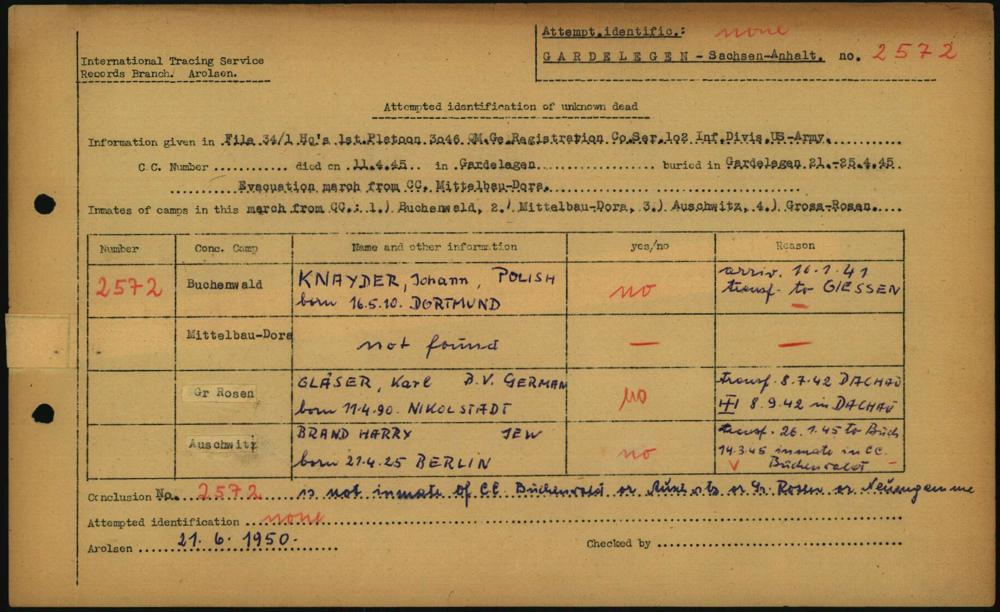 Attempt.identific.: none
International Tracing Service
Records Branch. Arolsen.
GARDELEGEN - Sachsen-Anhalt. no. 2572
Attempted identification of unknown dead
Information given in File 34/1 Hq's 1st.Platoon 3o46 QM.Ge.Registration Co.Ser.1o2 Inf.Divis.US-Army.
C.C. Number ............ died on 11.4.45 in Gardelegen buried in Gardelegen 21.-25.4.45
Evacuation march from CC. Mittelbau-Dora.
Inmates of camps in this march from CC.: 1.) Buchenwald, 2.) Mittelbau-Dora, 3.) Auschwitz, 4.) Gross-Rosen.
Number Conc. Camp Name and other information yes/no Reason
2572 Buchenwald KNAYDER, Johann, POLISH born 16.5.10. DORTMUND no arriv. 16.1.41 transf. to GIESSEN —
Mittelbau-Dora not found — —
Gr Rosen GLÄSER, Karl B.V. GERMAN born 11.4.90. NIKOLSTADT no transf. 8.7.42 DACHAU
8.9.42 in DACHAU
Auschwitz BRAND HARRY JEW born 21.4.25 BERLIN no transf. 26.1.45 to Buch
14.3.45 inmate in CC. Buchenwald —
Conclusion No. 2572 is not inmate of CC Buchenwald or Auschwitz or Gr. Rosen or Neuengamme
Attempted identification none
Arolsen 21. 6. 1950.
Checked by